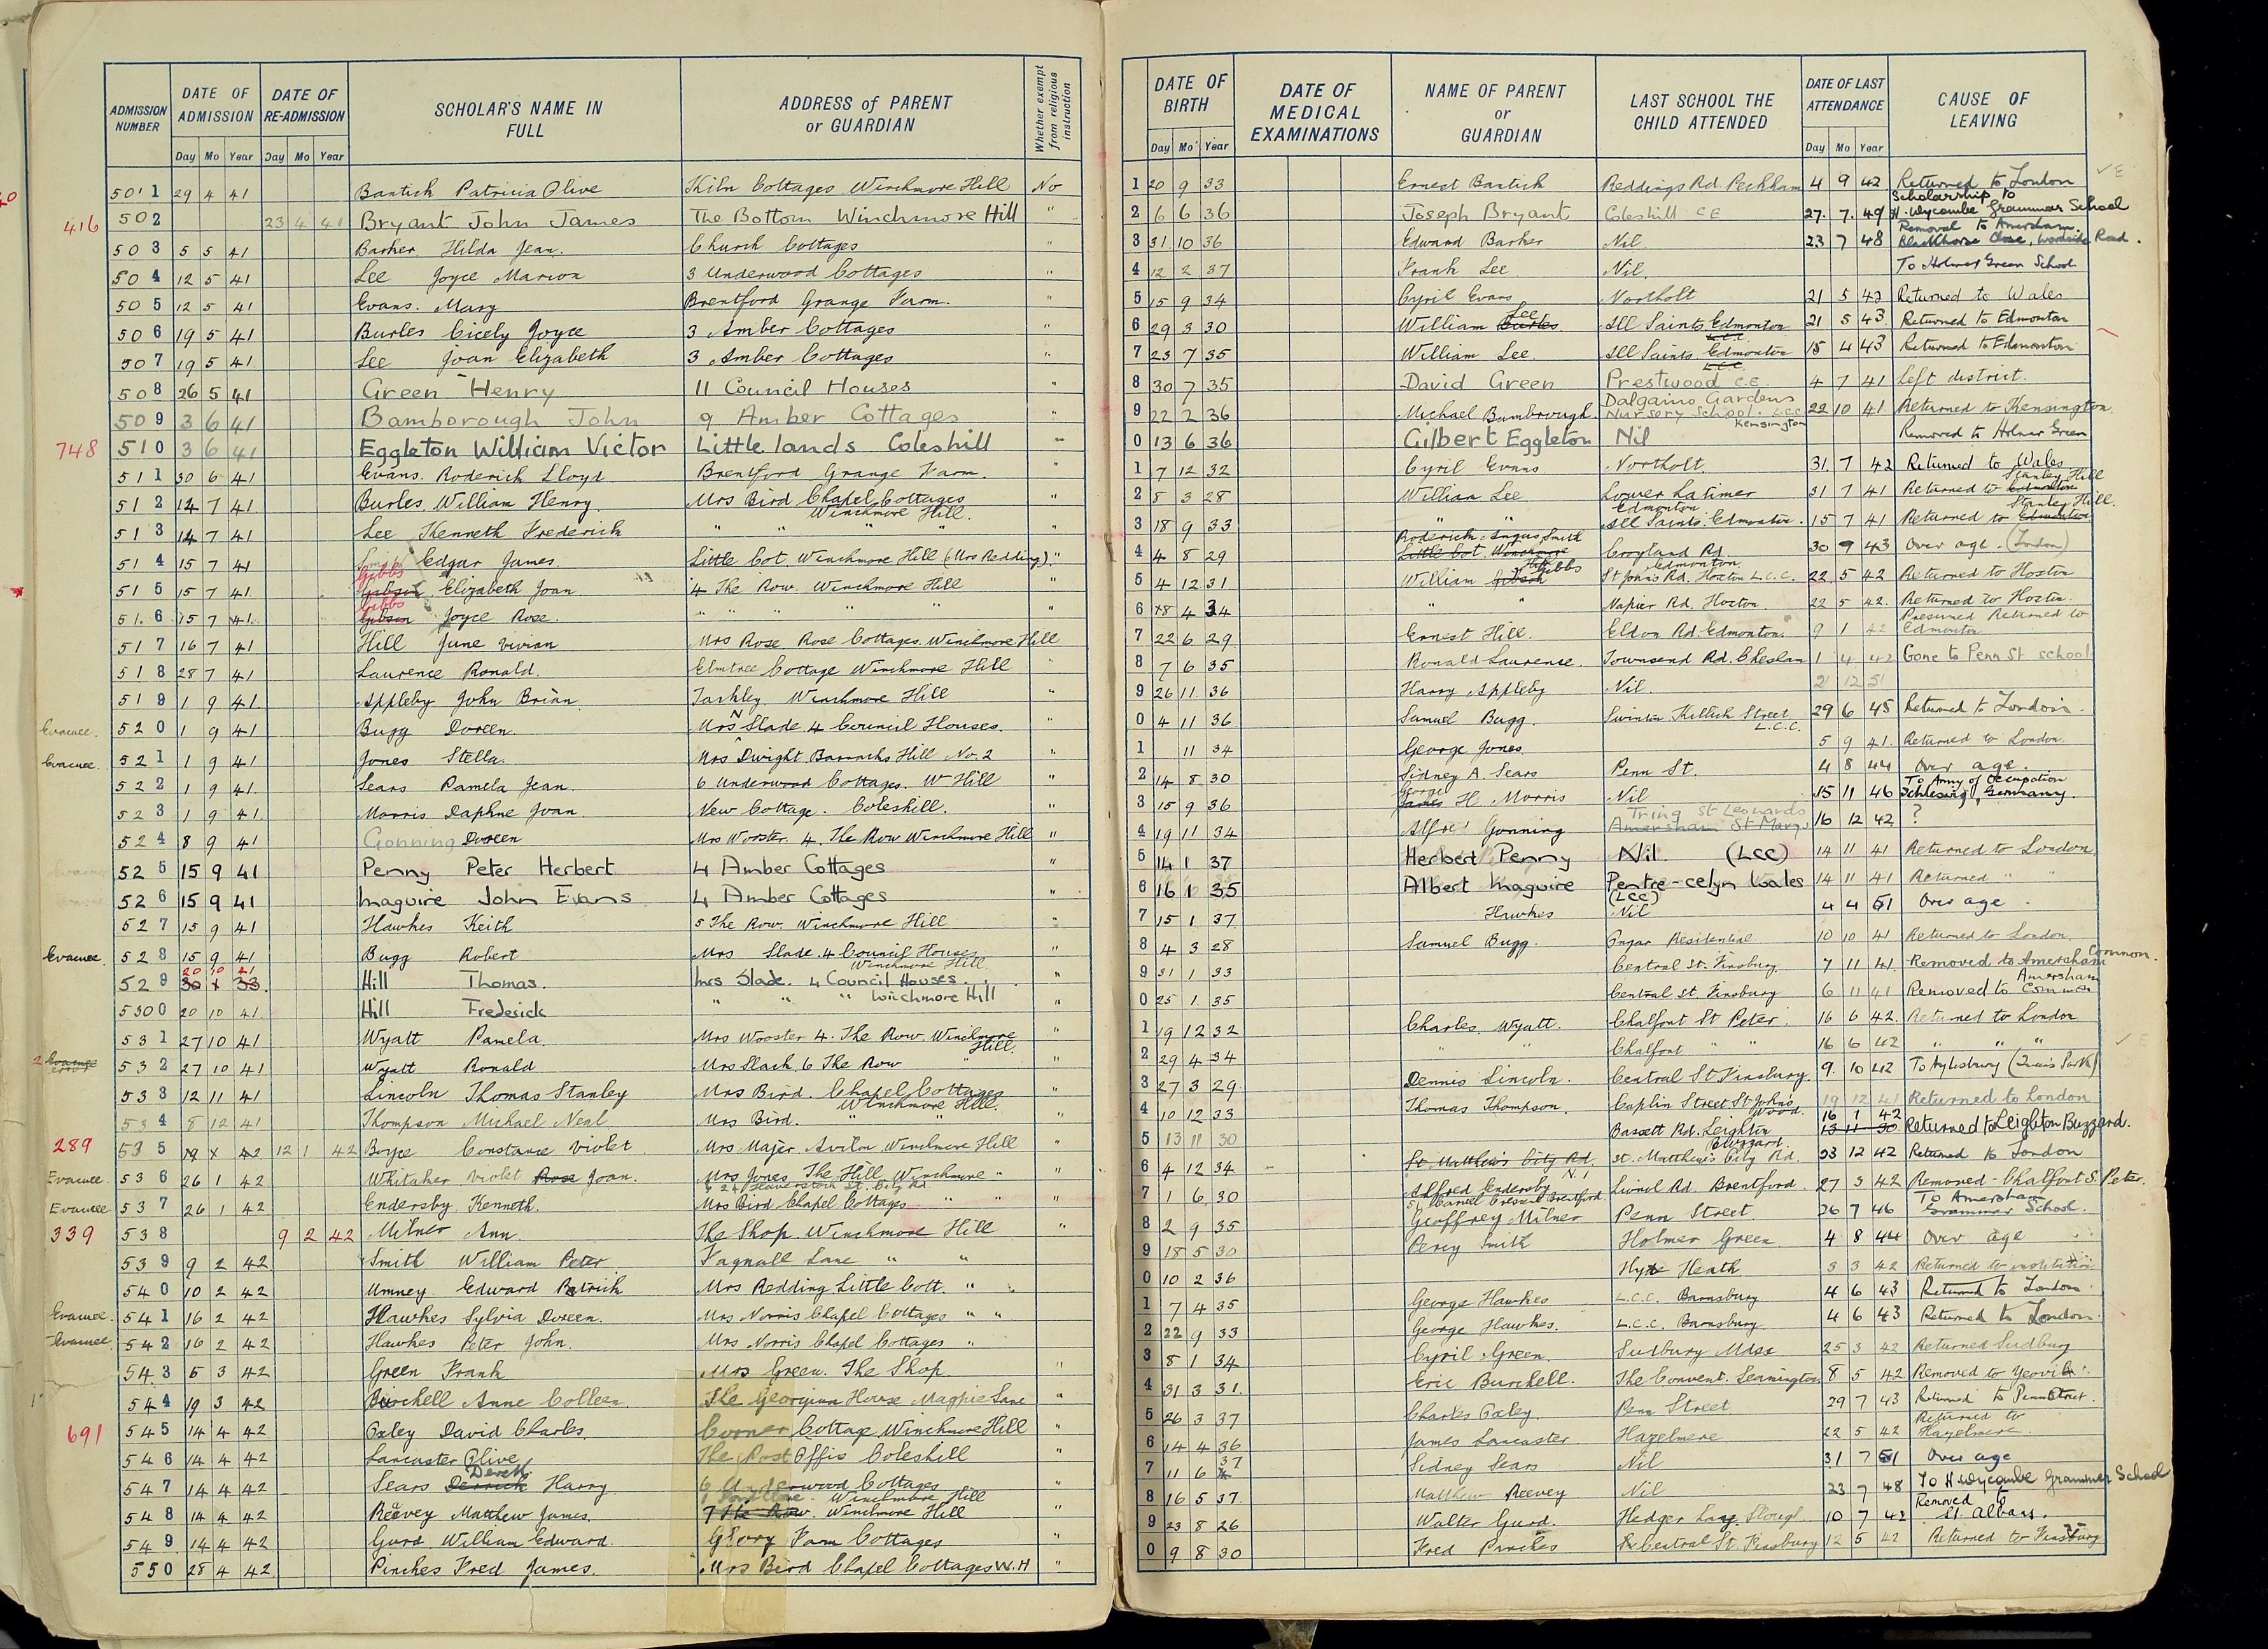 ADMISSION NUMBER
DATE OF ADMISSION
DATE OF RE-ADMISSION
SCHOLAR'S NAME IN FULL
ADDRESS of PARENT or GUARDIAN
Whether exempt from religious instruction
Day Mo Year Day Mo Year
501 29 4 41 Bantick Patricia Olive Kiln Cottages Winchmore Hill No
416 502 23 4 41 Bryant John James The Bottom Winchmore Hill "
503 5 5 41 Barker Hilda Jean. Church Cottages "
504 12 5 41 Lee Joyce Marion 3 Underwood Cottages "
505 12 5 41 Evans. Mary Brentford Grange Farm. "
506 19 5 41 Burles Cicely Joyce 3 Amber Cottages "
507 19 5 41 Lee Joan Elizabeth 3 Amber Cottages "
508 26 5 41 Green Henry 11 Council Houses "
509 3 6 41 Bamborough John 9 Amber Cottages "
748 510 3 6 41 Eggleton William Victor Little lands Coleshill "
511 30 6 41 Evans. Roderick Lloyd Brentford Grange Farm. "
512 14 7 41 Burles William Henry Mrs Bird Chapel Cottages Winchmore Hill. "
513 14 7 41 Lee Kenneth Frederick " " " " "
514 15 7 41 Smith Edgar James Little Cot Winchmore Hill (Mrs Redding) "
515 15 7 41 Gibson Gibbs Elizabeth Joan 4 The Row. Winchmore Hill "
516 15 7 41 Gibson Gibbs Joyce Rose. " " " " "
517 16 7 41 Hill June Vivian Mrs Rose Rose Cottages. Winchmore Hill
518 28 7 41 Laurence Ronald. Elmtree Cottage Winchmore Hill "
519 1 9 41 Appleby John Brian Winchmore Hill "
Evacuee. 520 1 9 41 Bugg Doreen Mrs N Slade 4 Council Houses. "
Evacuee. 521 1 9 41 Jones Stella. Mrs Dwight Barracks Hill No. 2 "
522 1 9 41 Sears Pamela Jean. 6 Underwood Cottages. W Hill "
523 1 9 41 Morris Daphne Joan New Cottage. Coleshill. "
524 8 9 41 Gonning Doreen Mrs Worster. 4. The Row Winchmore Hill "
525 15 9 41 Penny Peter Herbert 4 Amber Cottages "
526 15 9 41 Maguire John Evans 4 Amber Cottages "
527 15 9 41 Hawkes Keith 5 The Row. Winchmore Hill "
Evacuee. 528 15 9 41 Bugg Robert Mrs Slade. 4 Council Houses Winchmore Hill "
529 30 x 33 20 10 41 Hill Thomas. Mrs Slade. 4 Council Houses. "
530 20 10 41 Hill Frederick " " " Winchmore Hill "
531 27 10 41 Wyatt Pamela Mrs Wooster 4. The Row. Winchmore Hill. "
Evacuee 532 27 10 41 Wyatt Ronald Mrs Slack 6 The Row " "
533 12 11 41 Lincoln Thomas Stanley Mrs Bird. Chapel Cottages Winchmore Hill. "
534 8 12 41 Thompson Michael Neal Mrs Bird. " "
289 535 12 1 42 Boyce Constance Violet Mrs Major Avilon Winchmore Hill "
Evacuee 536 26 1 42 Whitaker Violet Rose Joan. Mrs Jones The Hill Winchmore " "
Evacuee 537 26 1 42 Endersby Kenneth. Mrs Bird Chapel Cottages " "
339 538 9 2 42 Milner Ann. The Shop Winchmore Hill "
539 9 2 42 Smith William Peter Fagnall Lane " "
540 10 2 42 Umney Edward Patrick Mrs Redding Little Cott. " "
Evacuee. 541 16 2 42 Hawkes Sylvia Doreen. Mrs Norris Chapel Cottages " "
Evacuee. 542 16 2 42 Hawkes Peter John. Mrs Norris Chapel Cottages "
543 5 3 42 Green Frank Mrs Green. The Shop. "
544 19 3 42 Burchell Anne Colleen. The Georgian House Magpie Lane "
691 545 14 4 42 Oxley David Charles. Corner Cottage Winchmore Hill "
546 14 4 42 Lancaster Olive The Post Offis Coleshill "
547 14 4 42 Sears Derrick Derek Harry 6 Underwood Cottages "
548 14 4 42 Reevey Matthew James. 7 The Row. Winchmore Hill Winchmore Hill "
549 14 4 42 Gurd William Edward. Glory Farm Cottages "
550 28 4 42 Pinches Fred James. Mrs Bird Chapel Cottages W.H "
DATE OF BIRTH
DATE OF MEDICAL EXAMINATIONS
NAME OF PARENT or GUARDIAN
LAST SCHOOL THE CHILD ATTENDED
DATE OF LAST ATTENDANCE
CAUSE OF LEAVING
Day Mo Year Day Mo Year
1 20 9 33 Ernest Bantick Reddings Rd. Peckham 4 9 42 Returned to London
2 6 6 36 Joseph Bryant Coleshill CE 27. 7. 49 Scholarship to H. Wycombe Grammar School
3 31 10 36 Edward Barker Nil. 23 7 48 Removal to Amersham Blackthorne Close, Woodside Road.
4 12 2 37 Frank Lee Nil. To Holmer Green School
5 15 9 34 Cyril Evans Northolt 21 5 42 Returned to Wales
6 29 3 30 William Burles Lee All Saints Edmonton L.C.C. 21 5 43 Returned to Edmonton
7 23 7 35 William Lee All Saints Edmonton L.C.C. 15 4 43 Returned to Edmonton
8 30 7 35 David Green Prestwood C.E. 4 7 41 Left district.
9 22 2 36 Michael Bambrough Dalgaino Gardens Nursery School. LCC Kensington 22 10 41 Returned to Kensington
0 13 6 36 Gilbert Eggleton Nil Removed to Holmer Green
1 7 12 32 Cyril Evans Northolt. 31. 7 42 Returned to Wales
2 5 3 28 William Lee Lower Latimer Edmonton 31 7 41 Returned to Edmonton Stanley Hill
3 18 9 33 " " All Saints. Edmonton. 15 7 41 Returned to Edmonton Stanley Hill.
4 4 8 29 Roderick Angus Smith Little Cot. Winchmore Hill Croyland Rd. Edmonton 30 9 43 Over age. (London)
5 4 12 31 William Gibson Gibbs St John's Rd. Hoxton L.C.C. 22 5 42 Returned to Hoxton
6 18 4 34 " " Napier Rd. Hoxton. 22 5 42. Returned to Hoxton
7 22 6 29 Ernest Hill. Eldon Rd. Edmonton. 9 1 42 Presumed Returned to Edmonton
8 7 6 35 Ronald Laurence. Townsend Rd. Chesham 1 4 42 Gone to Penn St school
9 26 11 36 Harry Appleby Nil. 21 12 51
0 4 11 36 Samuel Bugg. Street L.C.C. 29 6 45 Returned to London.
1 11 34 George Jones. 5 9 41. Returned to London
2 14 8 30 Sidney A. Sears Penn St. 4 8 44 Over age.
3 15 9 36 James George H. Morris Nil 15 11 46 To Army of Occupation Schleswig, Germany.
4 19 11 34 Alfred Gonning Amersham St Marys Tring St Leonards 16 12 42 ?
5 14 1 37 Herbert Penny Nil. (LCC) 14 11 41 Returned to London
6 16 1 35 Albert Maguire Pentre-celyn Wales (LCC) 14 11 41 Returned " "
7 15 1 37 Hawkes Nil 4 4 51 Over age.
8 4 3 28 Samuel Bugg. Ongar Residential 10 10 41 Returned to London
9 31 1 33 Central St. Finsbury. 7 11 41 Removed to Amersham Common.
0 25 1 35 Central St. Finsbury 6 11 41 Removed to Amersham Common
1 19 12 32 Charles Wyatt. Chalfont St Peter 16 6 42. Returned to London
2 29 4 34 " " Chalfont " " 16 6 42 " " "
3 27 3 29 Dennis Lincoln. Central St Finsbury. 9. 10 42 To Aylesbury
4 10 12 33 Thomas Thompson. Caplin Street St Johns Wood. 19 12 41 Returned to London
5 13 11 30 Bassett Rd. Leighton Buzzard. 13 11 30 16 1 42 Returned to Leighton Buzzard.
6 4 12 34 St. Matthew's City Rd. St. Matthew's City Rd. N.1 23 12 42 Returned to London
7 1 6 30 Alfred Endersby Lionel Rd. Brentford. 27 3 42 Removed - Chalfont S. Peter.
8 2 9 35 Geoffrey Milner Penn Street 26 7 46 To Amersham Grammar School.
9 18 5 30 Percy Smith Holmer Green 4 8 44 Over age
0 10 2 36 Hyde Heath 3 3 42 Returned to institution
1 7 4 35 George Hawkes L.C.C. Barnsbury 4 6 43 Returned to London
2 22 9 33 George Hawkes. L.C.C. Barnsbury 4 6 43 Returned to London.
3 8 1 34 Cyril Green Sudbury Mdsx 25 3 42 Returned Sudbury
4 31 3 31. Eric Burchell. The Convent. Leamington 8 5 42 Removed to Yeovil
5 26 3 37 Charles Oxley. Penn Street 29 7 43 Returned to Penn Street.
6 14 4 36 James Lancaster Hazelmere 22 5 42 Returned to Hazelmere
7 11 6 37 Sidney Sears Nil 31 7 51 Over age
8 16 5 37 Matthew Reevey Nil 23 7 48 To H. Wycombe Grammar School
9 23 8 26 Walter Gurd. Hedger Lay. Slough 10 7 42 Removed to St. Albans.
0 9 8 30 Fred Pinches Central St. Finsbury 12 5 42 Returned to Finsbury